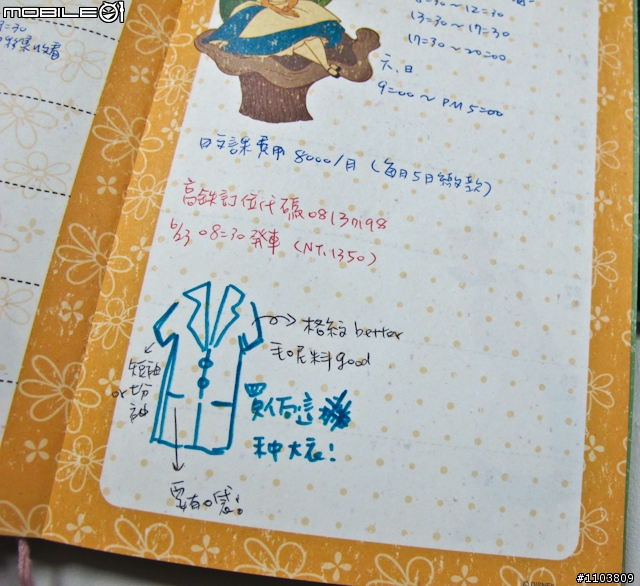 MOBILE01
8=30~12=30
13=30~17=30
17=30~20=00
六、日
9=00~PM 5=00
日文課費用 8000/月 (每月5日繳款)
高鐵訂位代碼 08137198
6/23 08=30 發車 (NT.1350)
格紋 better
毛呢料 good
短袖
or 七分
袖
買個這
種大衣!
© DISNEY
#1103809